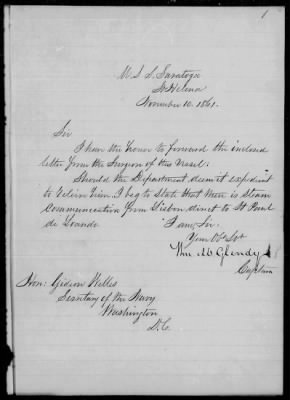 1
U. S. S. Saratoga
St Helena
November 10. 1861.
Sir
I have the honor to forward the inclosed
letter from the Surgeon of this Vessel.
Should the Department deem it expedient
to relieve him. I beg to State that there is steam
communication from Lisbon direct to St Paul
de Loando
I am, Sir,
Your Obt Svt
Wm. M. Glendy
Captain
Hon: Gideon Welles
Secretary of the Navy
Washington
D. C.